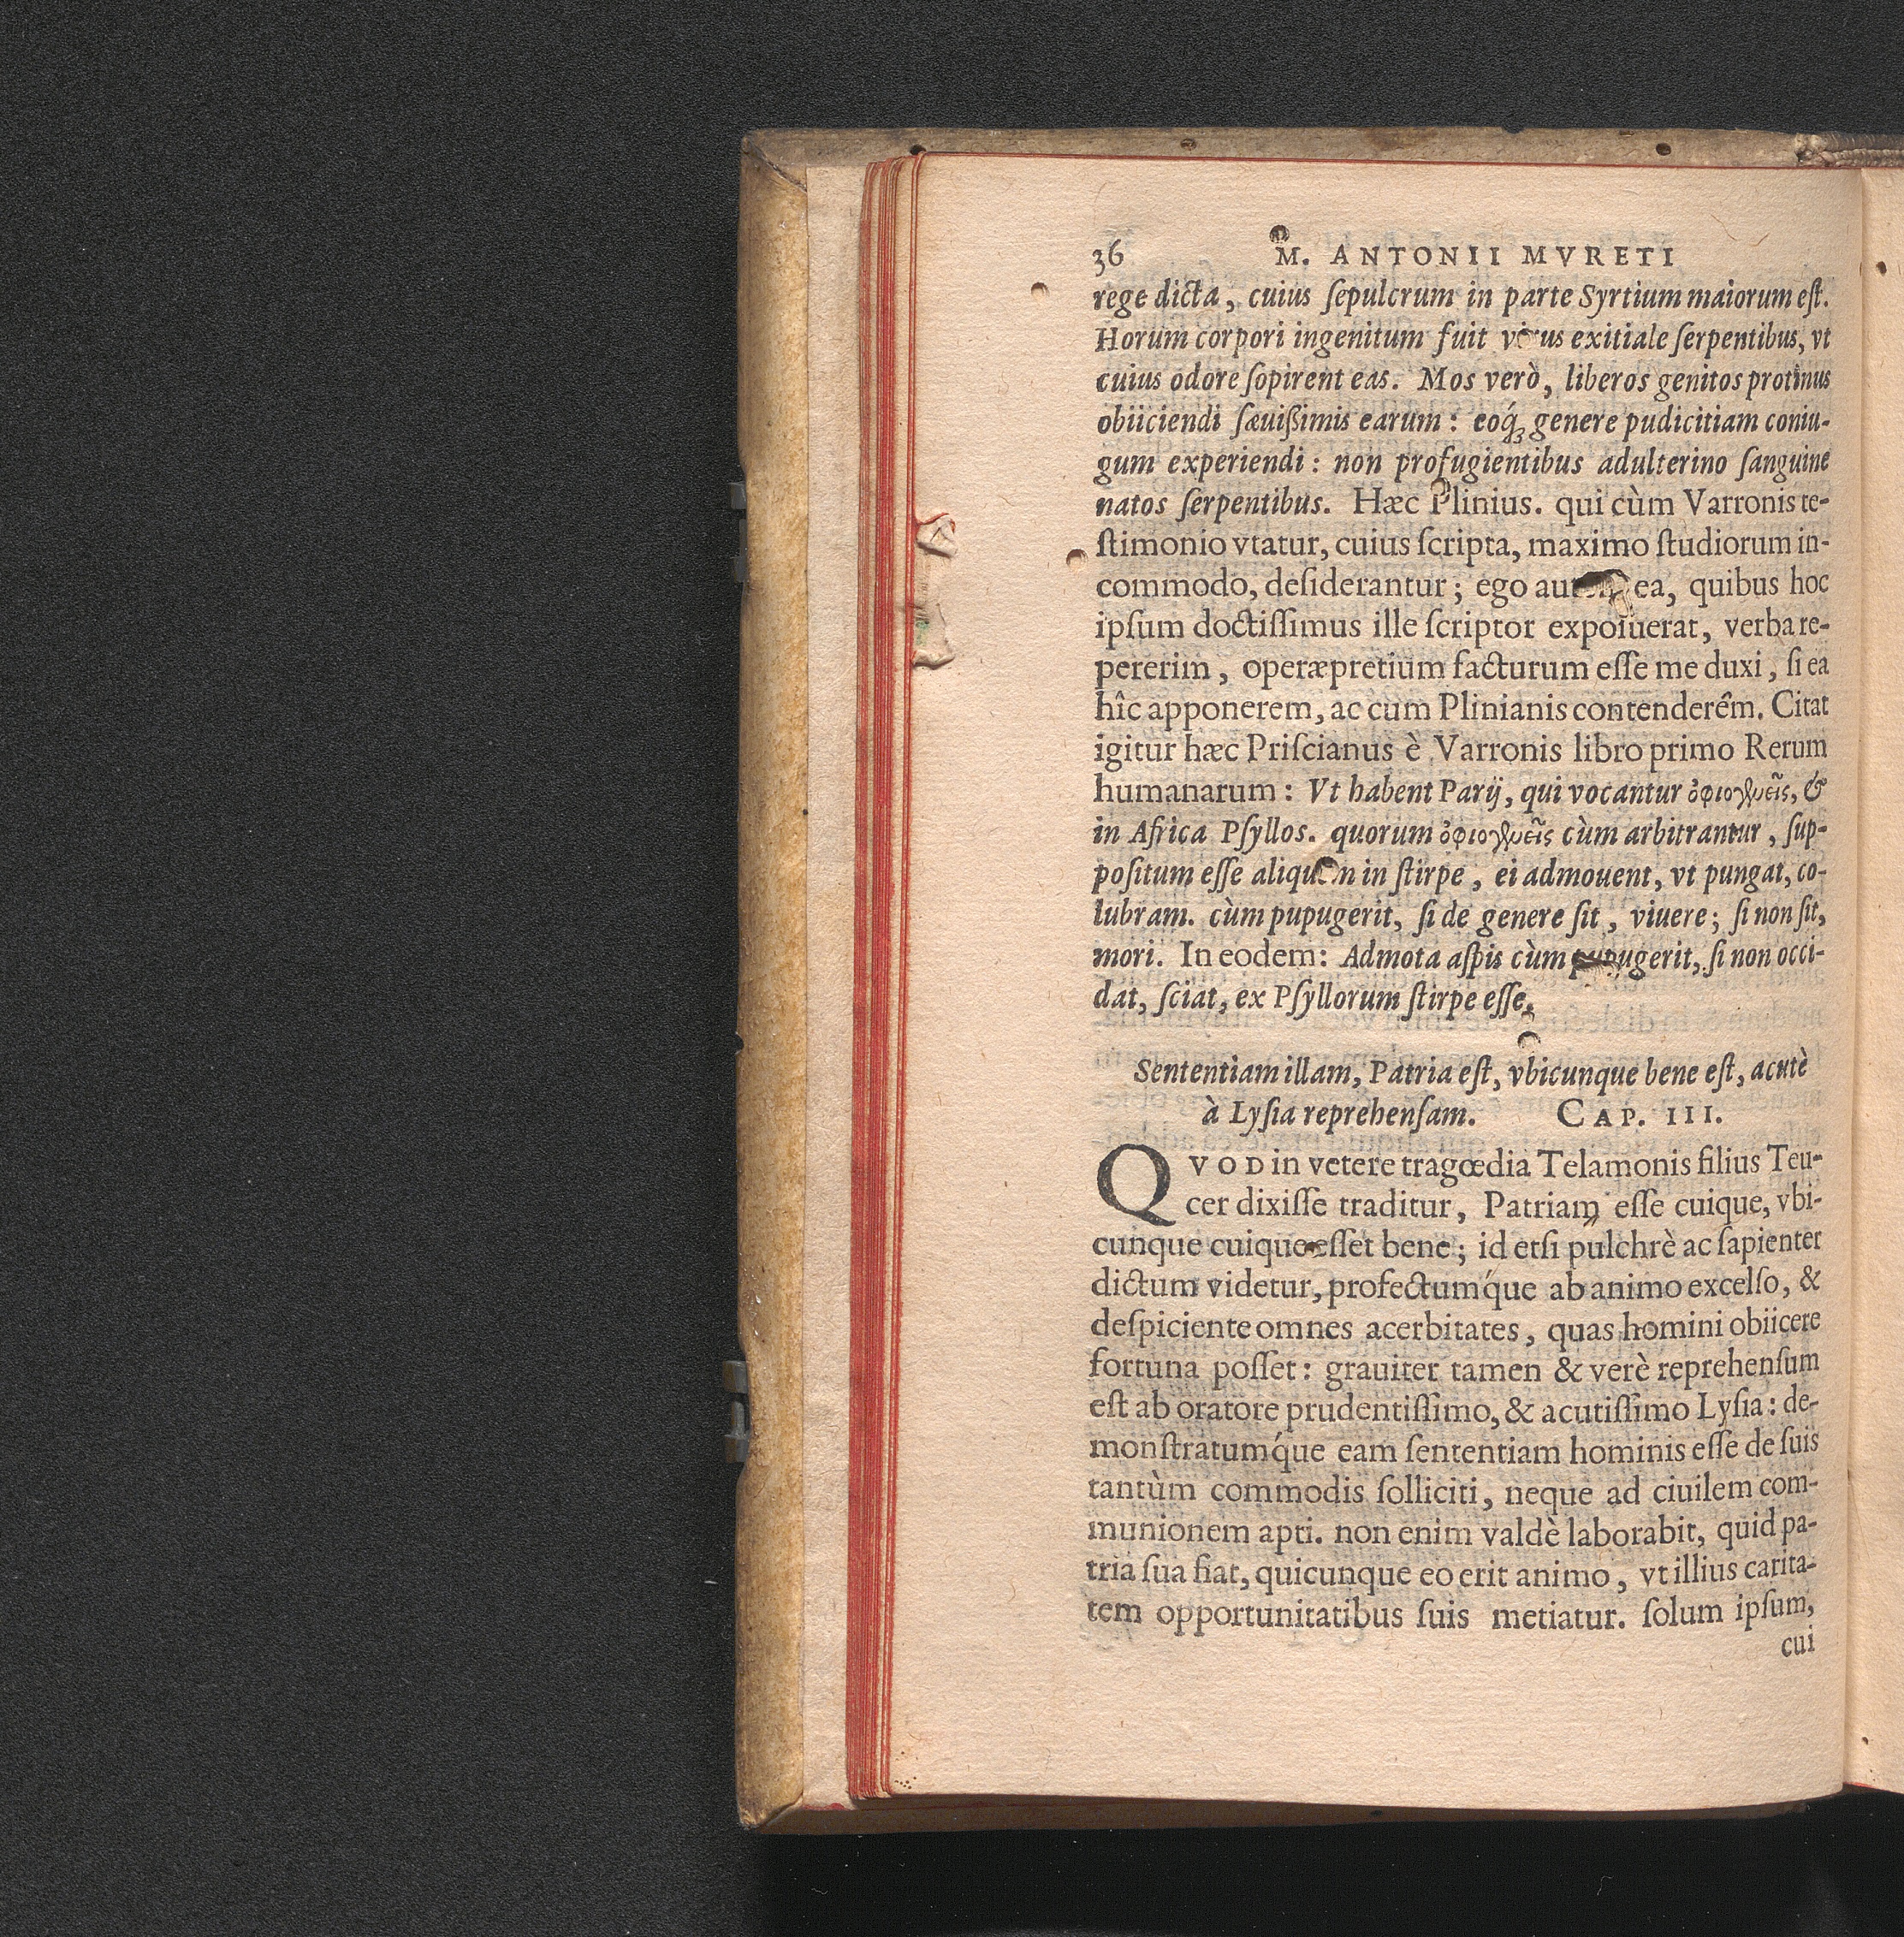 36 M. ANTONII MVRETI
rege dicta, cuius ſepulcrum in parte Syrtium maiorum eſt.
Horum corpori ingenitum fuit virus exitiale ſerpentibus, vt
cuius odore ſopirent eas. Mos verò, liberos genitos protinus
obiiciendi ſæuißimis earum: eoq́ꝫ genere pudicitiam coniu-
gum experiendi: non profugientibus adulterino ſanguine
natos ſerpentibus. Hæc Plinius. qui cùm Varronis te-
ſtimonio vtatur, cuius ſcripta, maximo ſtudiorum in-
commodo, deſiderantur; ego autem ea, quibus hoc
ipſum doctiſſimus ille ſcriptor expoſuerat, verba re-
pererim, operæpretium facturum eſſe me duxi, ſi ea
hîc apponerem, ac cum Plinianis contenderem. Citat
igitur hæc Priſcianus è Varronis libro primo Rerum
humanarum: Vt habent Parij, qui vocantur ὀφιογενεῖς, &
in Africa Pſyllos. quorum ὀφιογενεῖς cùm arbitrantur, ſup-
poſitum eſſe aliquem in ſtirpe, ei admouent, vt pungat, co-
lubram. cùm pupugerit, ſi de genere ſit, viuere; ſi non ſit,
mori. In eodem: Admota aſpis cùm pupugerit, ſi non occi-
dat, ſciat, ex Pſyllorum ſtirpe eſſe.
Sententiam illam, Patria eſt, vbicunque bene eſt, acutè
à Lyſia reprehenſam. CAP. III.
QVOD in vetere tragœdia Telamonis filius Teu-
cer dixiſſe traditur, Patriam eſſe cuique, vbi-
cunque cuique eſſet bene; id etſi pulchrè ac ſapienter
dictum videtur, profectumq́ue ab animo excelſo, &
deſpiciente omnes acerbitates, quas homini obiicere
fortuna poſſet: grauiter tamen & verè reprehenſum
eſt ab oratore prudentiſſimo, & acutiſſimo Lyſia: de-
monſtratumq́ue eam ſententiam hominis eſſe de ſuis
tantùm commodis ſolliciti, neque ad ciuilem com-
munionem apti. non enim valdè laborabit, quid pa-
tria ſua fiat, quicunque eo erit animo, vt illius carita-
tem opportunitatibus ſuis metiatur. ſolum ipſum,
cui